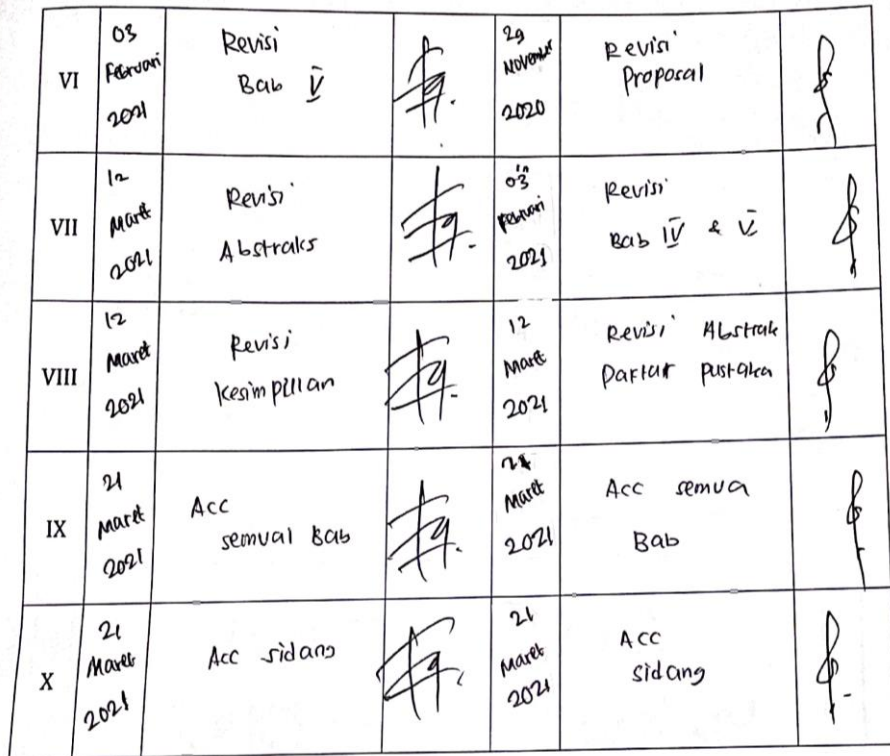 VI
03
Februari
2021
Revisi
Bab V
29
November
2020
Revisi
Proposal
VII
12
Maret
2021
Revisi
Abstraks
03
Februari
2021
Revisi
Bab IV & V
VIII
12
Maret
2021
Revisi
Kesimpulan
12
Maret
2021
Revisi Abstrak
Daftar pustaka
IX
21
Maret
2021
Acc
semual Bab
21
Maret
2021
Acc semua
Bab
X
21
Maret
2021
Acc sidang
21
Maret
2021
Acc
sidang